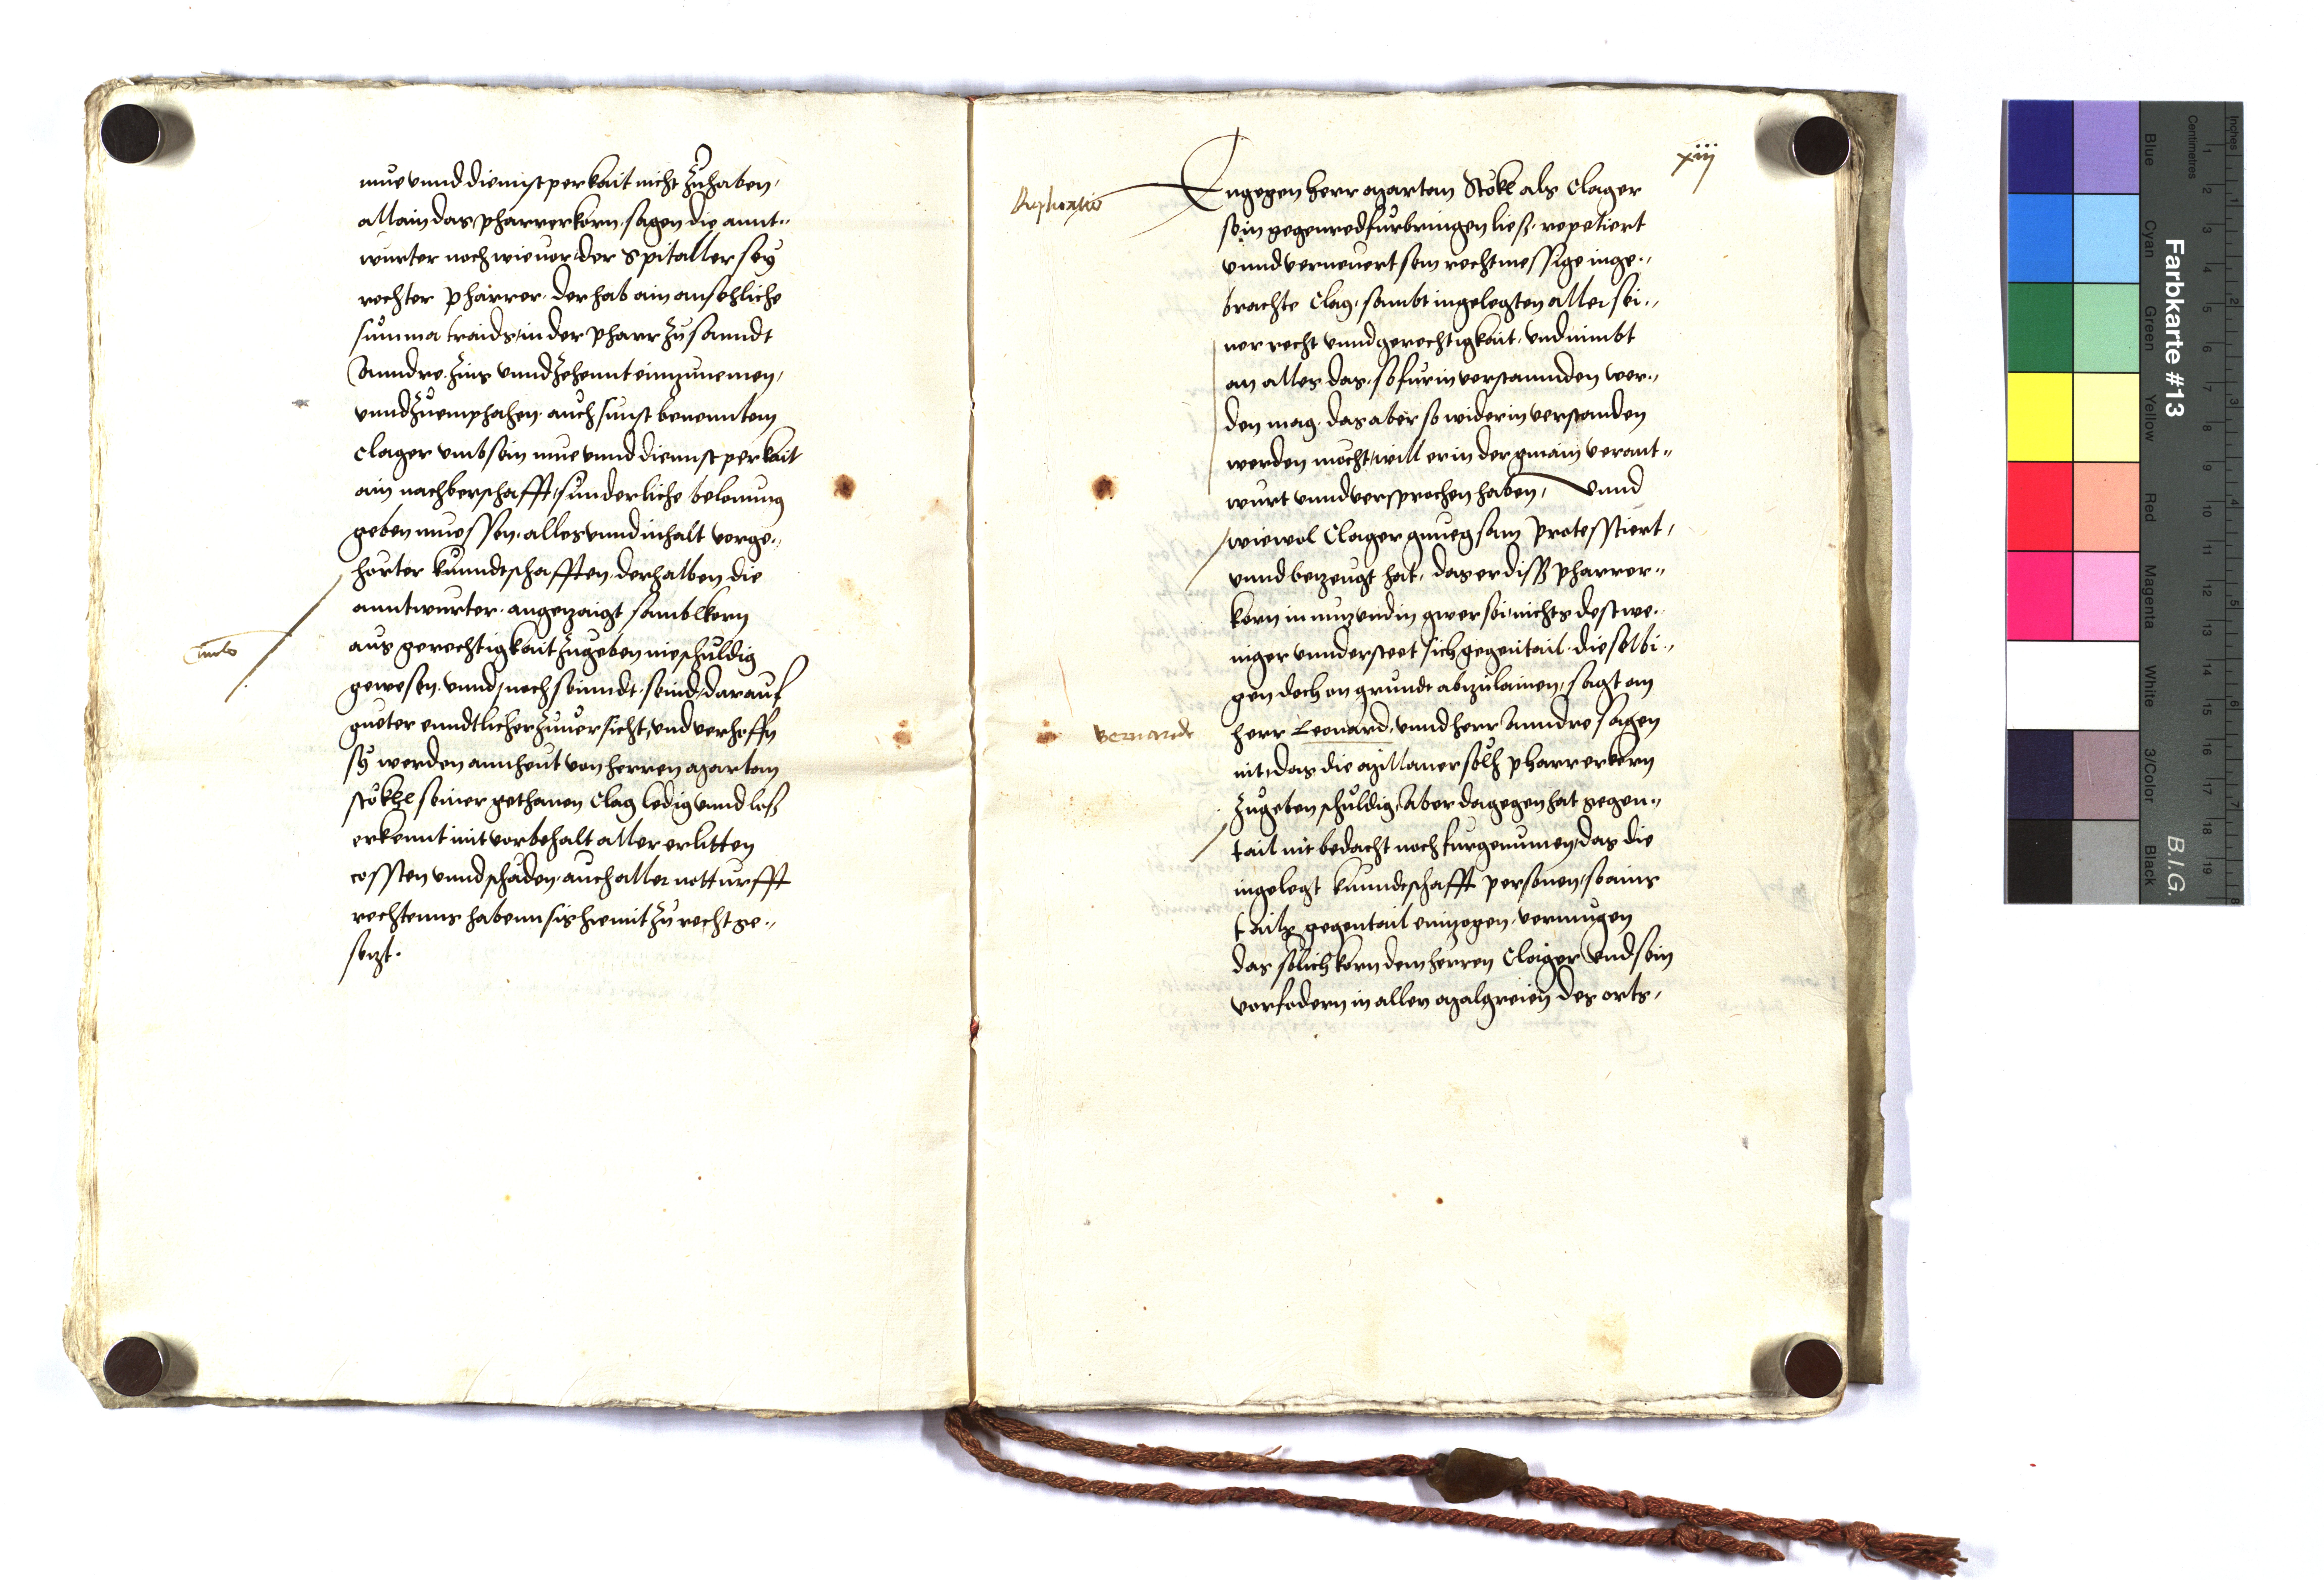 mue vnnd diemistperkait nicht zuhaben,
allain das pharrerkorn. sagen die annt„
wurter noch wie uor, der Spitaller sey
rechter pharrer. der hab ain ansehliche
summa traids, in der pharr zu sanndt
Anndre. zins vnnd zehennt einzunemen,
vnnd zuemphahen. auch sunst benenntem
Clager vmb sein mue vnnd diennstperkait
ain nachberschafft, sunderliche belonung
geben muessen. alles vnnd inhalt vorge„
horter kunndtschafften. derhalben die
anntwurter. angezaigt sambtkorn
aus gerechtigkait zugeben nie schuldig
gewesen. vnnd, noch seinndt. seind, darauf
gueter enndtlicher zuuersicht, vnd verhoffn
sy werden ann heut von herren martan
Stökhl seiner gethanen Clag ledig vnnd loß
erkennt mit vorbehalt aller erlitten
cossten vnnd schaden. auch aller notturfft
rechtenns habenn sis hiemit zu recht ge„
setzt.
xiij
Replicatio
Engegen herr martan Stökl als Clager
sein gegenred furbringen ließ. repetiert
vnnd verneuert sein rechtmessige inge„
brachte Clag. sambt ingelegten aller sei„
ner recht vnnd gerechtigkait. vnd nimbt
an alles das. so fur in verstannden wer„
den mag. das aber so wider in verstanden
werden mocht, will er in der gmain verant„
wurt vnnd versprochen haben, vnnd
wiewol Clager gnuegsam protesstiert,
vnnd bezeugt hat. das er diss pharrer„
korn in nuz vnd in gwer sei. nichts destwe„
niger vnndersteet sich gegentail. dieselbi„
gen doch on grundt abzulainen, sagt am
Bernardt
herr Leonard, vnnd herr Anndre sagen
nit, das die millaner solh pharrerkorn
zugeben schuldig, Aber dagegen hat gegen„
tail nit bedacht noch furgenumen, das die
ingelegt kunndtschafft personen, so ains
tails gegentail einzogen. vermugen
das solich korn dem herren Clager vnd sein
vorfodern in allen malgreien des orts,
Farbkarte #13
B.I.G.
Inches
Centimetres
Blue
Cyan
Green
Yellow
Red
Magenta
White
3/Color
Black
1 2 3 4 5 6 7 8 9 10 11 12 13 14 15 16 17 18 19
1 2 3 4 5 6 7 8